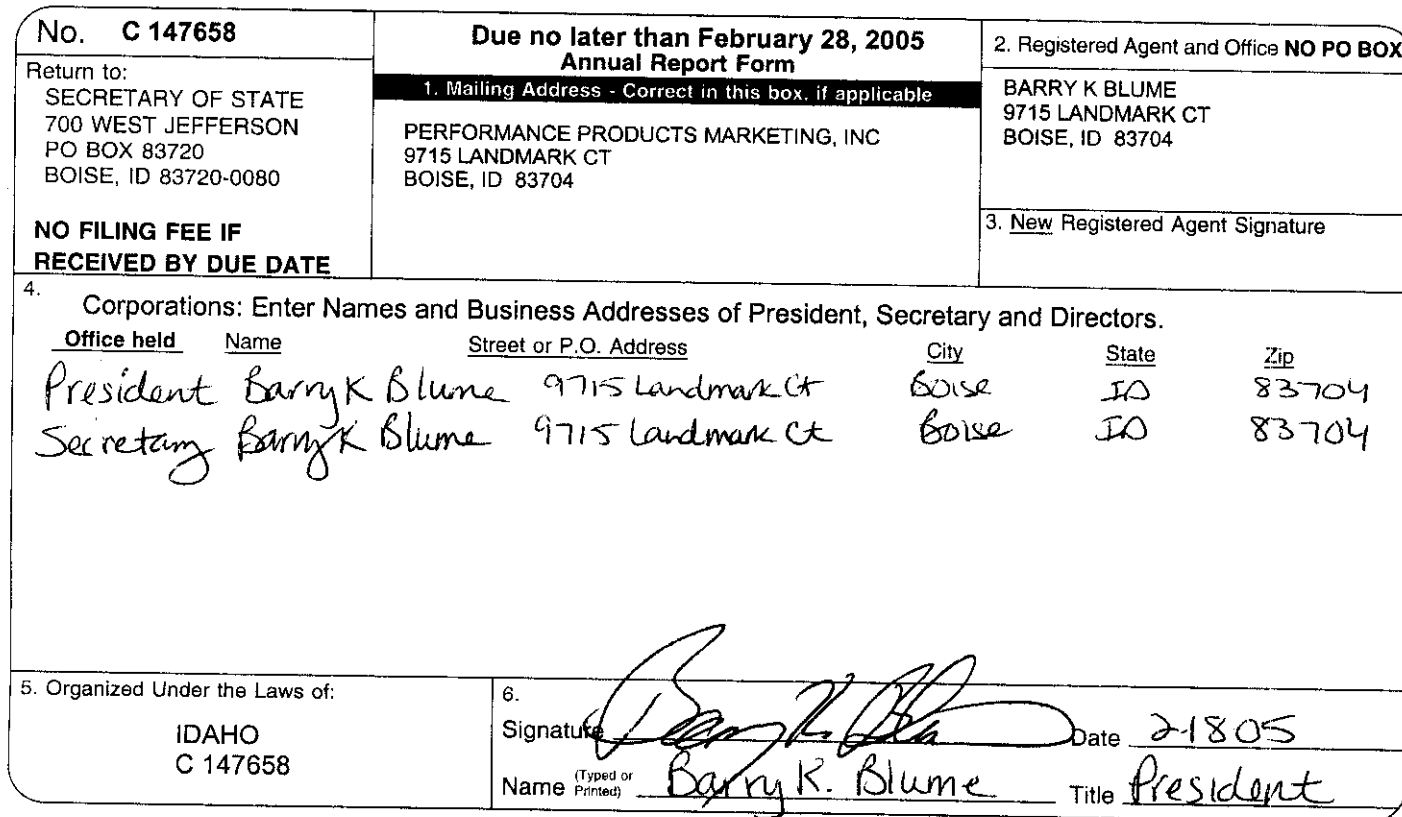 No. C 147658
Return to:
SECRETARY OF STATE
700 WEST JEFFERSON
PO BOX 83720
BOISE, ID 83720-0080
NO FILING FEE IF
RECEIVED BY DUE DATE
Due no later than February 28, 2005
Annual Report Form
1. Mailing Address - Correct in this box, if applicable
PERFORMANCE PRODUCTS MARKETING, INC
9715 LANDMARK CT
BOISE, ID 83704
2. Registered Agent and Office NO PO BOX
BARRY K BLUME
9715 LANDMARK CT
BOISE, ID 83704
3. New Registered Agent Signature
4.
Corporations: Enter Names and Business Addresses of President, Secretary and Directors.
Office held Name Street or P.O. Address City State Zip
President Barry K Blume 9715 Landmark Ct Boise ID 83704
Secretary Barry K Blume 9715 Landmark Ct Boise ID 83704
5. Organized Under the Laws of:
IDAHO
C 147658
6.
Signature Barry K. Blume Date 2-1805
Name (Typed or Printed) Barry K. Blume Title President